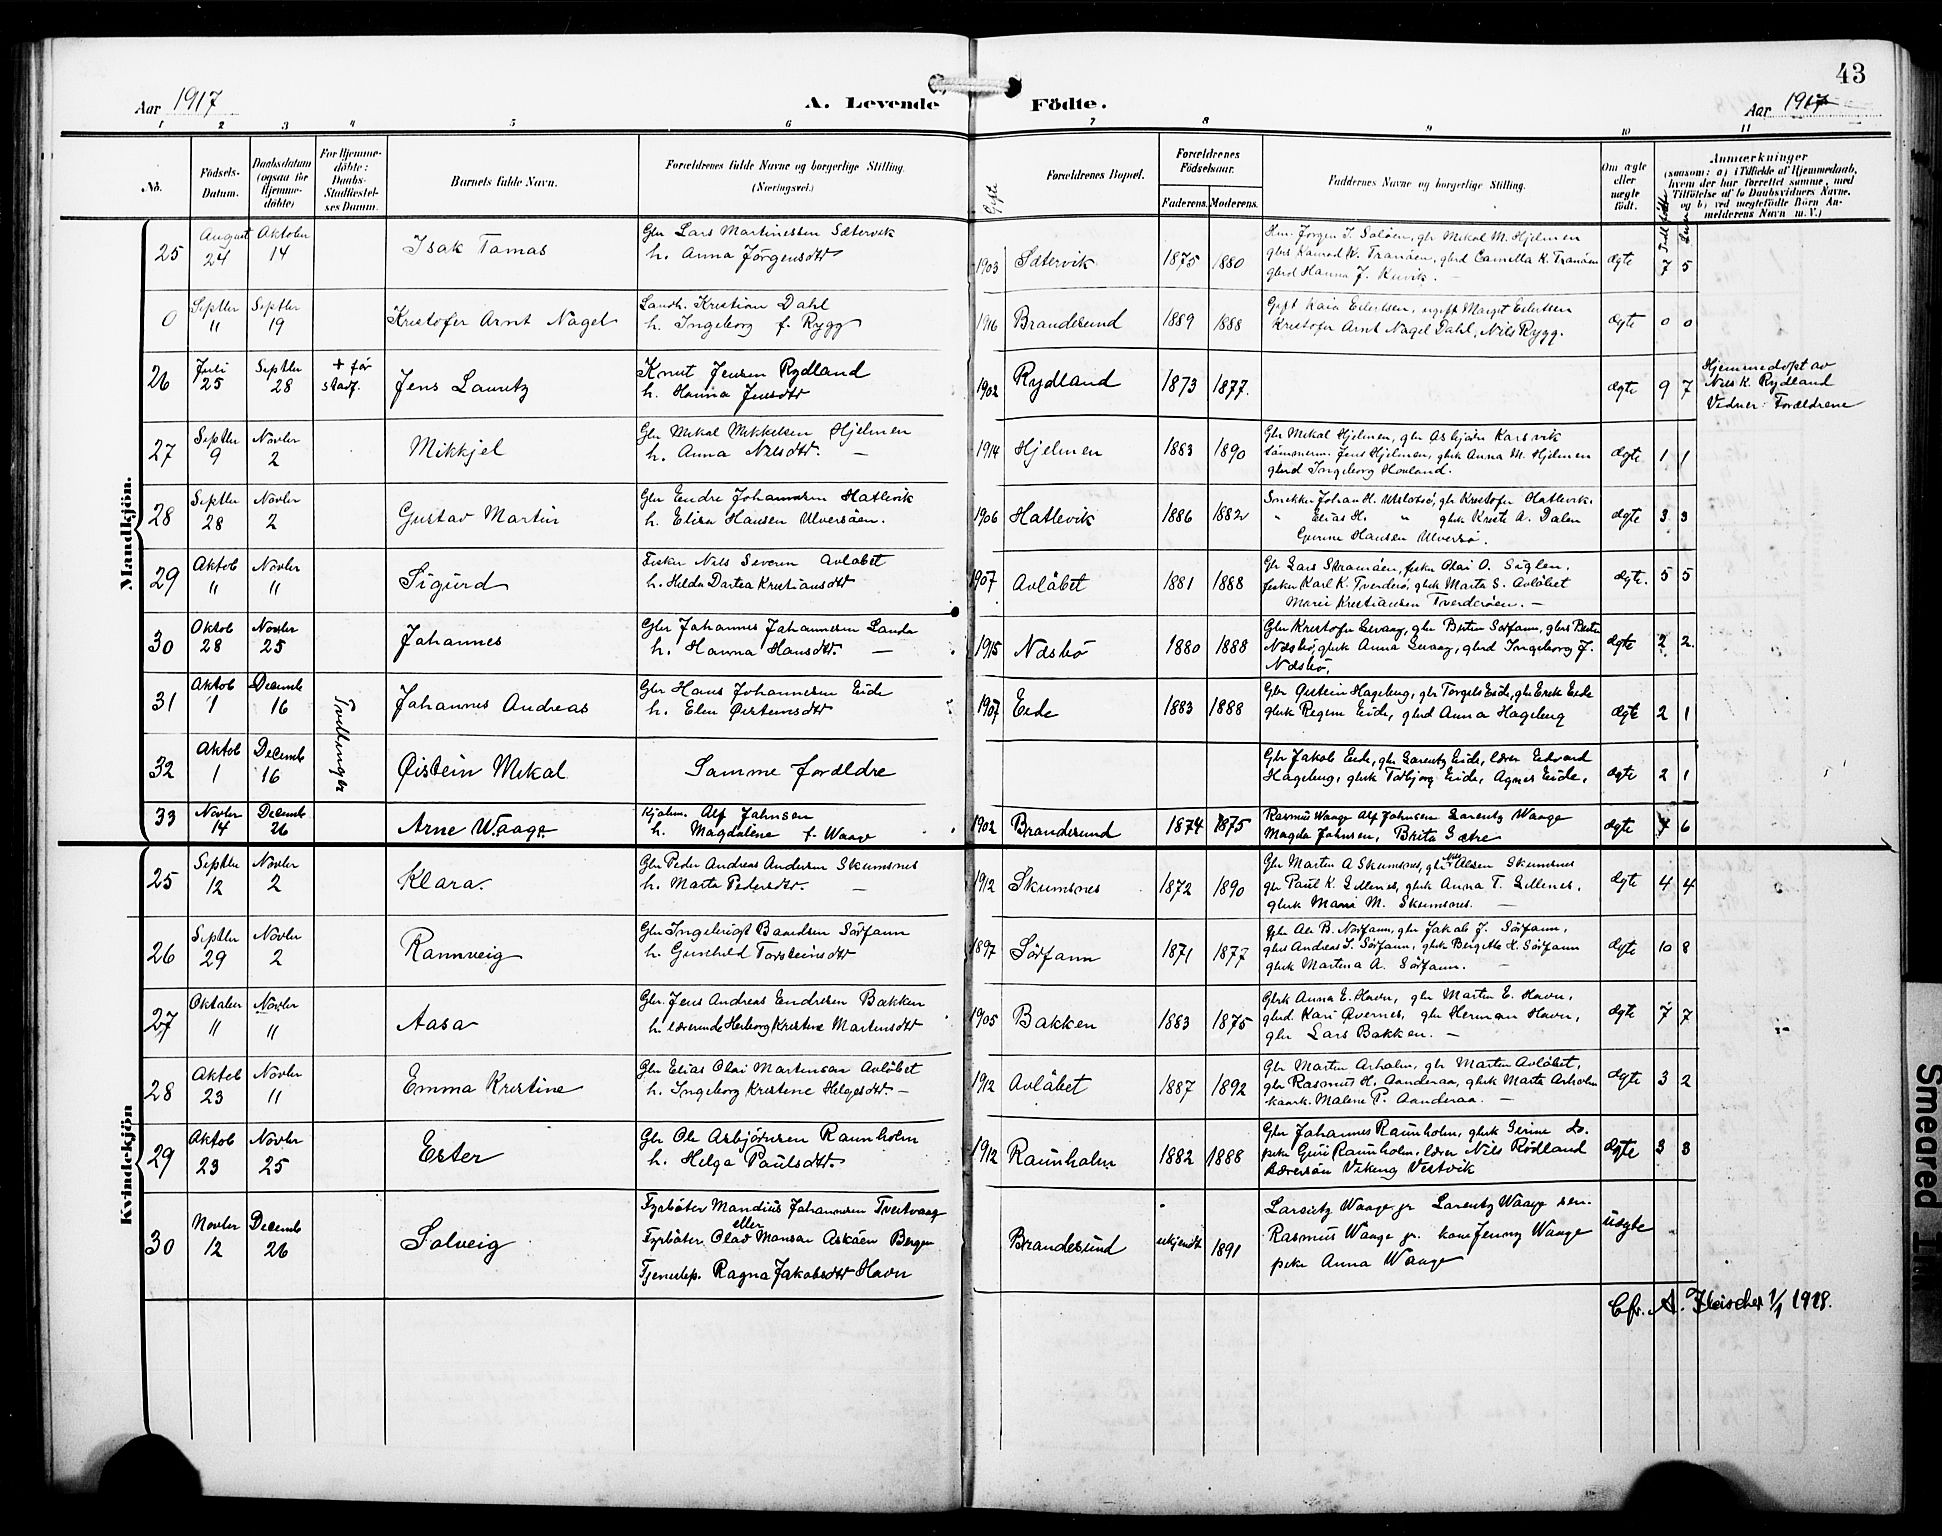 43
Aar 1917
A. Levende Födte.
Aar 1917
1 2 3 4 5 6 7 8 9 10 11
No.
Födsels-Datum.
Daabsdatum (ogsaa for Hjemmedöbte)
For Hjemmedöbte: Daabs-Stadfestelses Datum.
Barnets fulde Navn.
Forældrenes fulde Navne og borgerlige Stilling. (Næringsvei.)
Gifte
Forældrenes Bopæl.
Forældrenes Födselsaar.
Faderens. Moderens.
Faddernes Navne og borgerlige Stilling.
Om ægte eller uægte födt.
Anmærkninger
(saasom: a) i Tilfælde af Hjemmedaab, hvem der har forrettet samme, med Tilföielse af to Daabsvidners Navne, og b) ved uægtefödte Börn Anmelderens Navn m. V.)
Mandkjön.
25 August 24 Oktober 14 Isak Tomas
Gbr Lars Martinessen Sætervik
h. Anna Jørgensdtr
1903 Sætervik 1875 1880
gbrs Konrad K. Tranøen, gbrd Camilla K. Tranøen
gbrd Hanna J.
ægte 7 5
0 Septbr 11 Septbr 19 Kristofer Arnt Nagel
Landh. Kristian Dahl
h. Ingeborg f. Rygg
1916 Brandesund 1889 1888
Gift Kaia Eilertsen, ugift Margit Eilertsen
Kristofer Arnt Nagel Dahl, Nils Rygg.
ægte 0 0
26 Juli 25 Septbr 28 + før stadf. Jens Lauritz
Knut Jensen Rydland
h. Hanna Jensdtr
1902 Rydland 1873 1877.
ægte 9 7
Hjemmedøpt av
Nils K. Rydland
Vidner: Forældrene
27 Septbr 9 Novbr 2 Mikkjel
Gbr Mikal Mikkelsen Hjelmen
h. Anna Nilsdtr. —
1914 Hjelmen 1883 1890
Gbr Mikal Hjelmen, gbr Asbjørn Karsvik
tømmerm. Jens Hjelmen, gbrk Anna M. Hjelmen
gbrd Ingeborg Hovland.
ægte 1 1
28 Septbr 28 Novbr 2 Gustav Martin
Gbr Endre Johannesen Hatlevik
h. Elisa Hansen Ulversøen.
1906 Hatlevik 1886 1882
Snekker Johan H. Ulversø, gbr Kristofer Hatlevik.
" Elias H. " gbrk Kriste A. Dalen
Gurine Hansen Ulversø.
ægte 3 3
29 Oktob 11 Novbr 11 Sigurd
Fisker Nils Severin Avløbet
h. Helda Dortea Kristiansdtr
1907 Avløbet 1881 1888
fisker Karl K. Tverderø, gbrk Marta S. Avløbet
Marie Kristiansen Tverderøen. —
ægte. 5 5
30 Oktob 28 Novbr 25 Johannes
Gbr Johannes Johannesen Landa
h. Hanna Hansdtr. —
1915 Næsbø 1880 1888
Næsbø, gbrk Anna Gevaag, gbrd Ingeborg J.
Næsbø.
ægte 2 2
31 Oktob 1 Decemb 16 Tvillinger Johannes Andreas
Gbr Hans Johannesen Eide
h. Elen Øisteinsdtr
1907 Eide 1883 1888
Gbr Øistein Hageberg, gbr Torgels Eide, gbr Erik Eide
gbrk Regine Eide, gbrd Anna Hageberg
ægte 2 1
32 Oktob 1 Decemb 16 Øistein Mikal
Samme forældre
Gbr Jakob Eide, gbr Lorentz Eide, lærer Edvard
Hageberg, gbrk Torbjørg Eide, Agnes Eide.
ægte 2 1
33 Novbr 14 Decemb 26 Arne Waage
Kjøbm. Alf Johnsen
h. Magdalene f. Waage
1902 Brandesund 1874 1875
Rasmus Waage Alf Johnsen Lorentz Waage
Magda Johnsen, Brita Sætre
ægte 7 6
Kvindekjön
25 Septbr 12 Novbr 2 Klara.
Gbr Peder Andreas Andersen Skumsnes
h. Marta Pedersdtr. —
1912 Skumsnes 1872 1890
Gbr Martin A Skumsnes, gbr Nils Olsen Skumsnes
gbr Paul K. Gillenes, gbrk Anna T. Gillenes,
gbrk Mari M. Skumsnes. —
ægte 4 4
26 Septbr 29 Novbr 2 Rannveig
Gbr Ingebrigt Baardsen Sørfonn
h. Gunhild Torsteinsdtr
1897 Sørfonn 1871 1877
Gbr Ole B. Nordfonn, gbr Jakob J. Sørfonn,
gbrs Andreas I. Sørfonn, gbrk Bergitte K. Sørfonn
gbrk Martina A. Sørfonn. —
ægte 10 8
27 Oktober 11 Novbr 11 Aasa
Gbr. Jens Andreas Endresen Bakken
h. lærerinde Herborg Kristine Martinsdtr
1905 Bakken 1883 1875
Gbrk Anna E. Havn, gbr Martin E. Havn,
gbrd Kari Øvernes, gbr Herman Havn,
gbr Lars Bakken. —
ægte 7 7
28 Oktob 23 Novbr 11 Emma Kristine
Gbr Elias Olai Martinsen Avløbet
h. Ingeborg Kristine Helgesdtr. —
1912 Avløbet 1887 1892
Gbr Martin Arholm, gbr Martin Avløbet,
gbr Rasmus H. Aanderaa, gbrk Marta Arholm
kaark. Malene P. Aanderaa. —
ægte 3 2
29 Oktob 23 Novbr 25 Ester
Gbr Ole Asbjørnsen Raunholm
h. Helga Paulsdtr.
1912 Raunholm 1882 1888
Gbr Johannes Raunholm, gbrk Serine do.
pike Guri Raunholm, lærer Nils Rødland
Lærersøn Viking Vestvik
ægte 3 3
30 Novbr 12 Decemb 26 Solveig
Fyrbøter Mandius Johannesen Tveitvaag
eller
Fyrbøter Olav Monsen Askøen Bergen
Tjenestep. Ragna Jakobsdtr Havn
Brandesund ukjendt 1891
Lorentz Waage jr Lorentz Waage sen.
Rasmus Waage jr. kone Jenny Waage
pike Anna Waage
uægte
Cfr. A. Fleischer 1/1 1918.
Smeared Ink